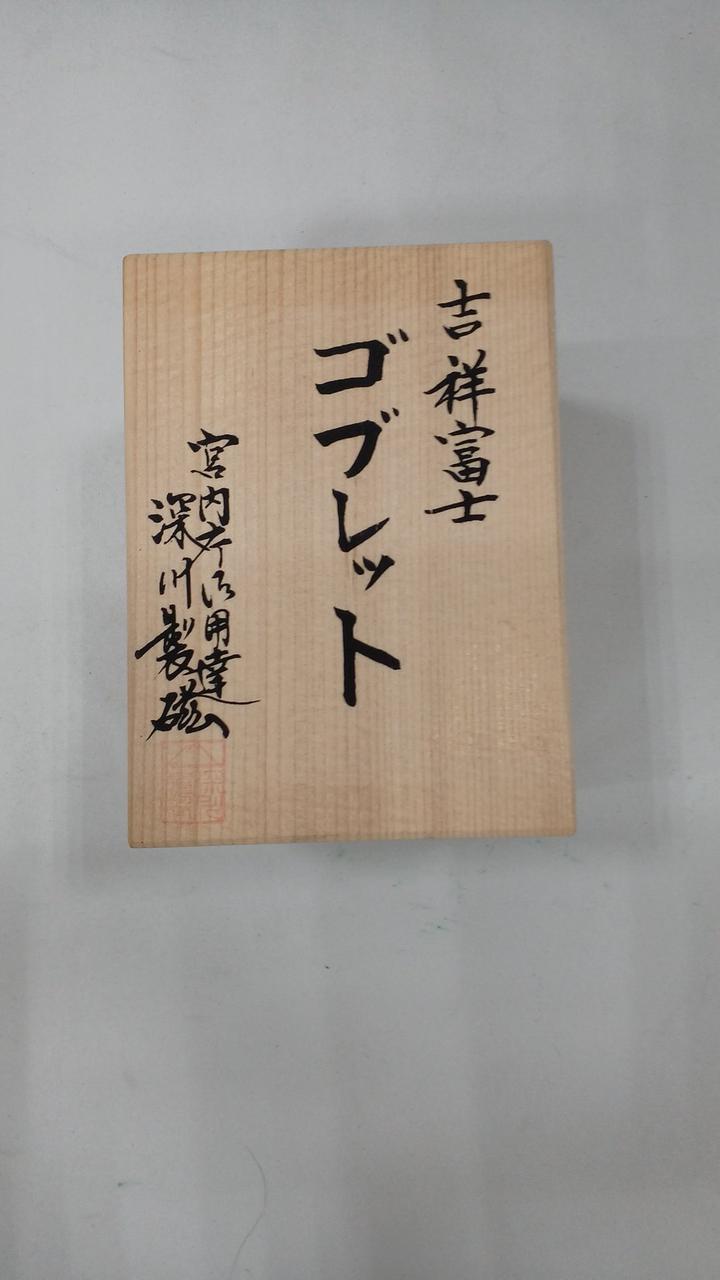 吉祥富士
ゴブレット
宮内庁御用達
深川製磁